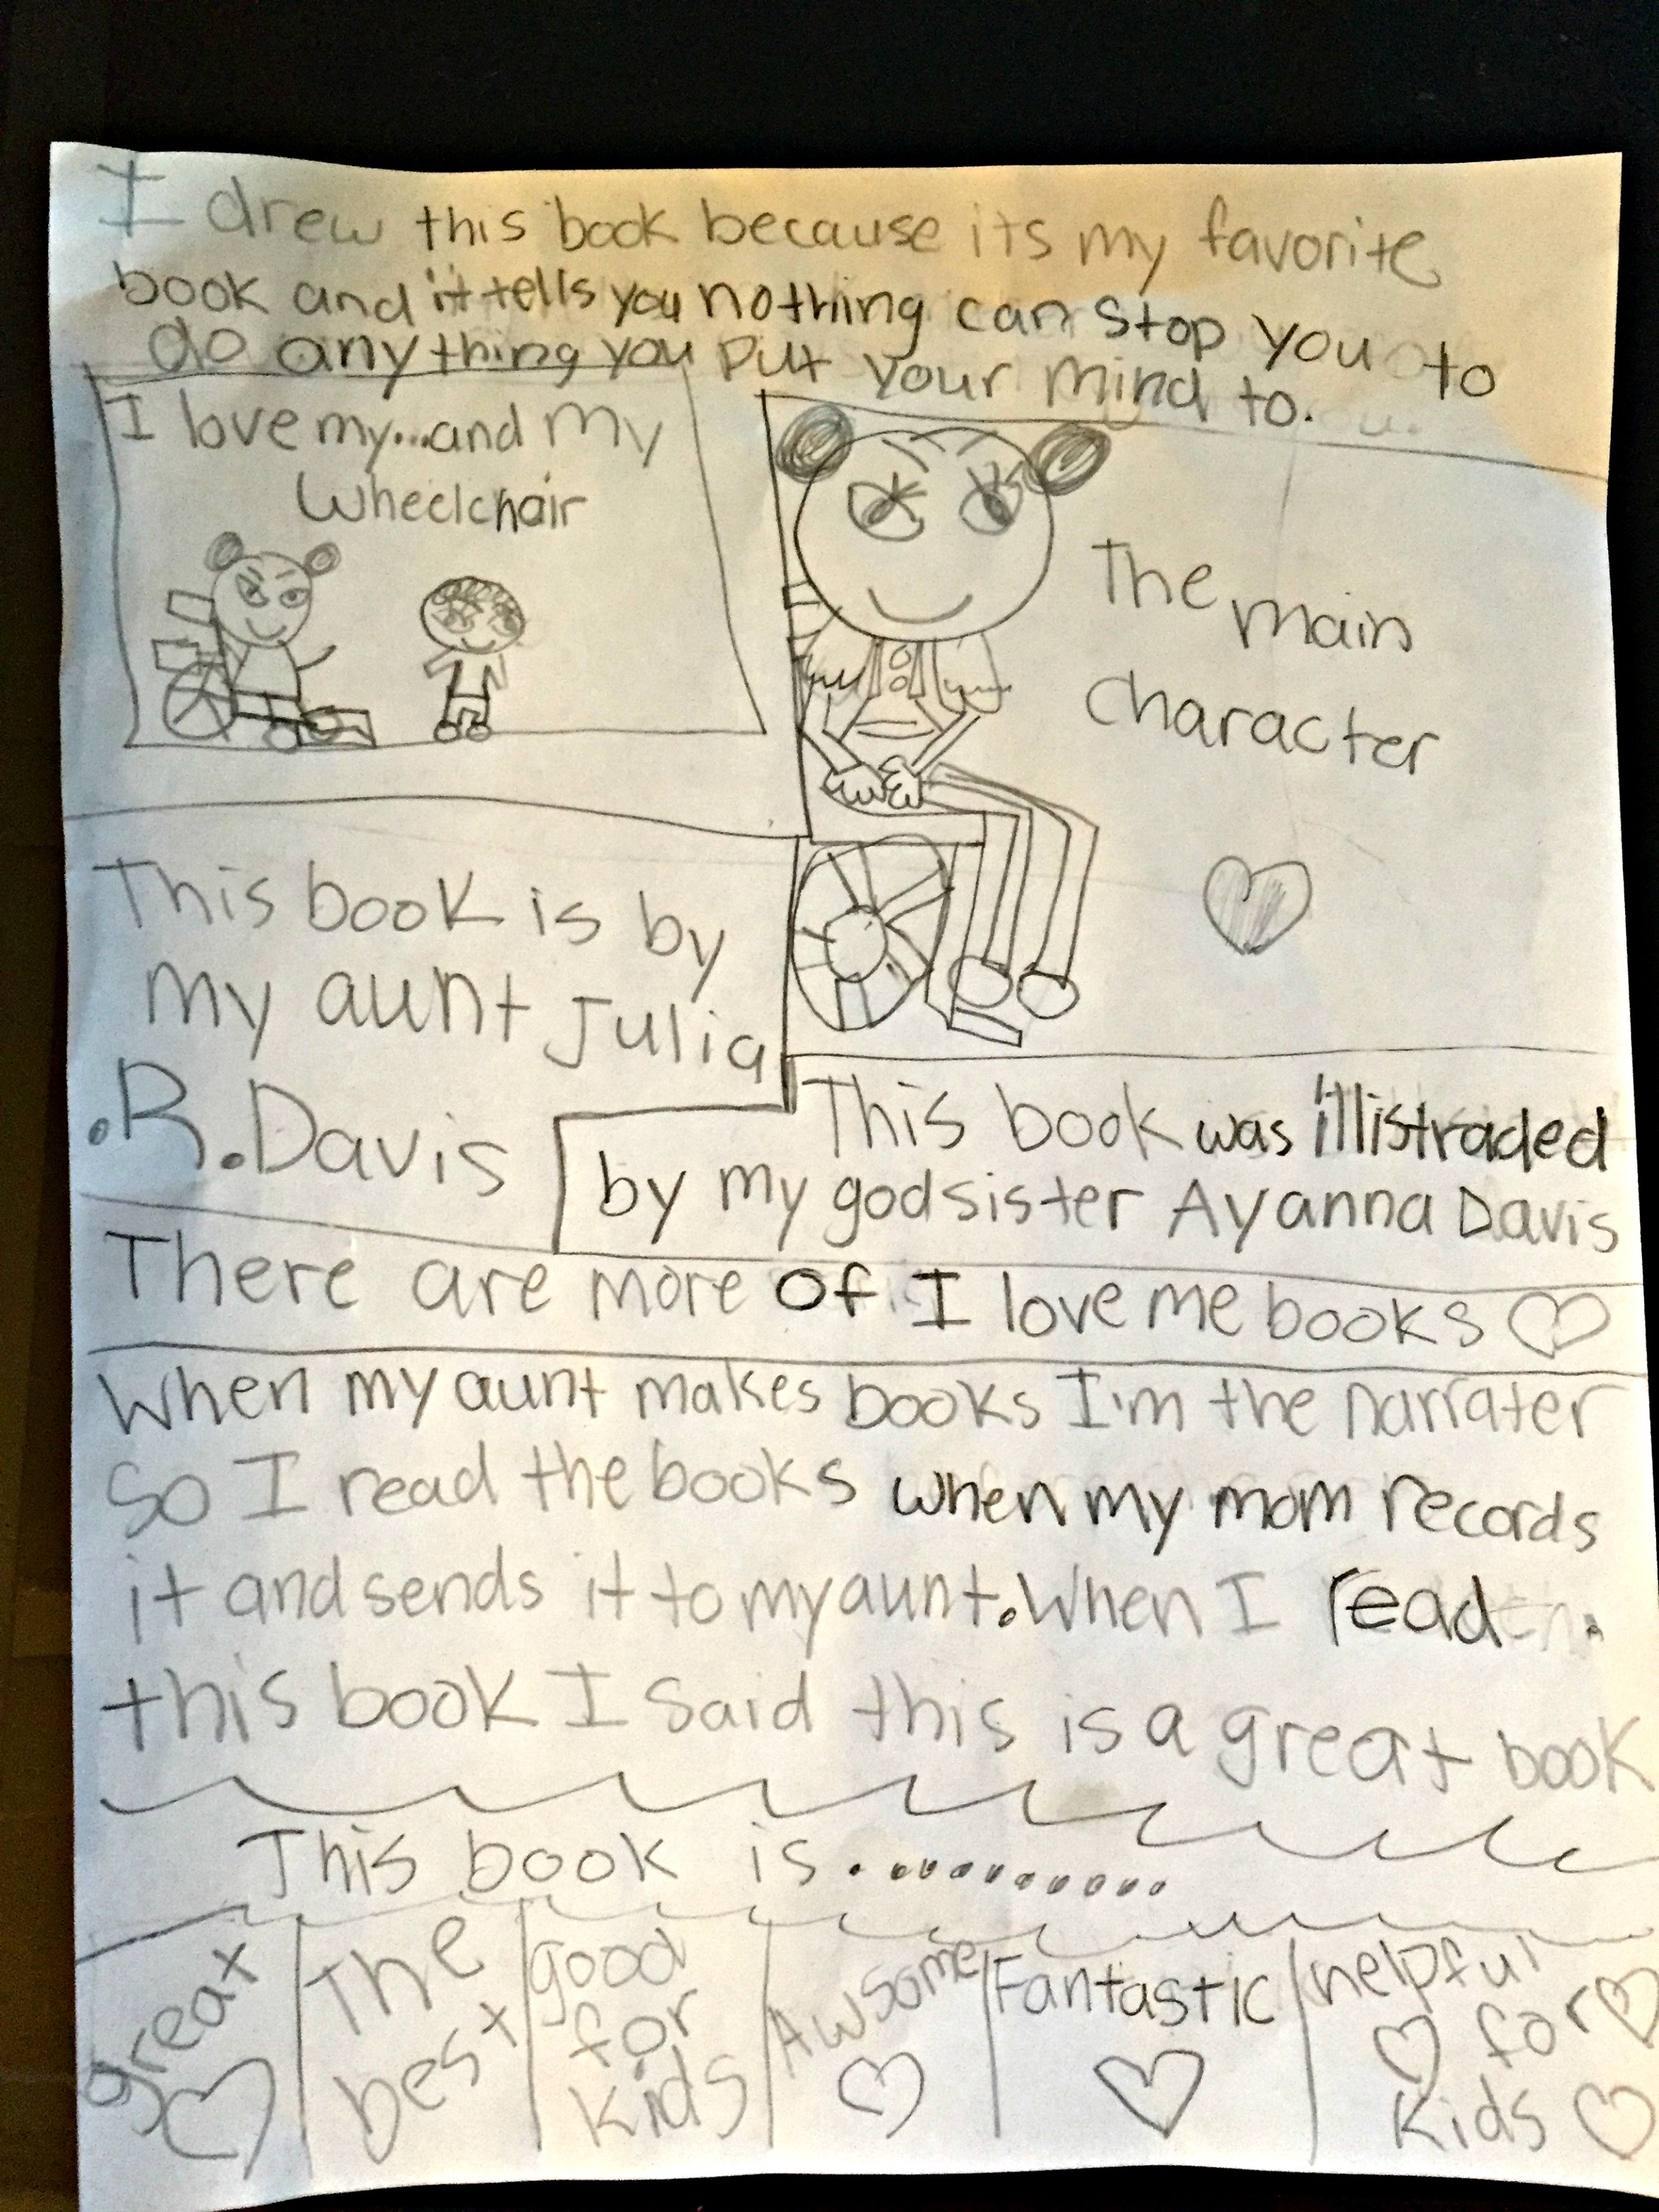 I drew this book because its my favorite
book and it tells you nothing can stop you to
do anything you put your mind to.
I love my...and my
Wheelchair
The main
character
This book is by
my aunt Julia
.R.Davis
This book was illistraded
by my godsister Ayanna Davis
There are more of I love me books
When my aunt makes books I'm the narrater
So I read the books when my mom records
it and sends it to my aunt. When I read
this book I said this is a great book
This book is...........
great
The
best
good
for
kids
Awsome
Fantastic
helpful
for
kids